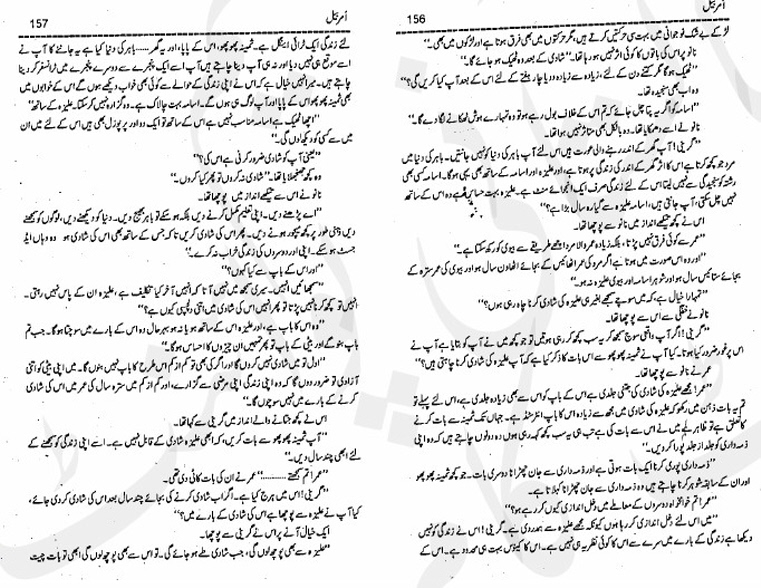 156
امر بیل
لڑکے بے شک نوجوانی میں بہت سی حرکتیں کرتے ہیں، مگر حرکتوں میں بھی فرق ہوتا ہے اور لڑکوں میں بھی۔"
نانو پر اس کی باتوں کا کوئی اثر نہیں ہو رہا تھا۔ "شادی کے بعد وہ ٹھیک ہو جائے گا۔"
"ٹھیک ہوگا مگر کتنے دن کے لئے، زیادہ سے زیادہ دو یا چار ہفتے کے لئے اس کے بعد آپ کیا کریں گی؟"
وہ اب بھی سنجیدہ تھا۔
"اسامہ کو اگر یہ پتا چل جائے کہ تم اس کے خلاف بول رہے ہو تو وہ تمہارے ہوش ٹھکانے لگا دے گا۔"
نانو نے اسے دھمکایا تھا۔ وہ بالکل بھی متاثر نہیں ہوا تھا۔
"گرینی! آپ گھر کے اندر رہنے والی عورت ہیں اس لئے آپ باہر کی دنیا کو نہیں جانتیں۔ باہر کی دنیا میں
مرد جو کچھ کرتا ہے اس کا اثر گھر کے اندر کی زندگی پر ہوتا ہے، اور علیزہ اور اسامہ کے ساتھ بھی یہی ہوگا۔ اسامہ کسی بھی
رشتہ کو سنجیدگی سے نہیں لیتا اس کے لئے زندگی صرف ایک انجوائے منٹ ہے۔ علیزہ بہت حساس ہے وہ اس کے ساتھ
نہیں چل سکتی، آپ جانتی ہیں، اسامہ علیزہ سے گیارہ سال بڑا ہے؟"
اس نے کچھ تیکھے انداز میں نانو سے پوچھا تھا۔
"عمر سے کوئی فرق نہیں پڑتا، بلکہ زیادہ عمر والا مرد اچھے طریقے سے بیوی کو رکھ سکتا ہے۔"
"اور وہ اس صورت میں ہوتا ہے اگر مرد کی عمر اٹھائیس کے بجائے اٹھاون سال ہو اور بیوی کی عمر سترہ کے
بجائے ستائیس سال ہو اور شوہر اسامہ اور بیوی علیزہ نہ ہو۔"
"تمہارا خیال ہے، کہ میں سوچے سمجھے بغیر ہی علیزہ کی شادی کرنا چاہ رہی ہوں؟"
نانو نے خفگی سے اس سے پوچھا تھا۔
"گرینی! اگر آپ واقعی سوچ سمجھ کر یہ سب کچھ کر رہی ہوتیں تو جو کچھ میں نے آپ کو بتایا ہے آپ نے
اس پر غور ضرور کیا ہوتا۔ کیا آپ نے ثمینہ پھوپھو سے اس بات کا ذکر کیا ہے کہ آپ علیزہ کی شادی کرنا چاہتی ہیں؟"
عمر نے نانو سے پوچھا تھا۔
"عمر! مجھے علیزہ کی شادی کی جتنی جلدی ہے اس کے باپ کو اس سے بھی زیادہ جلدی ہے، اس لئے پہلے تو
تم یہ بات ذہن میں رکھو کہ علیزہ کی شادی میں مجھ سے زیادہ اس کا باپ انٹرسٹڈ ہے۔ جہاں تک ثمینہ سے بات کرنے
کا تعلق ہے تو ظاہر ہے میں نے اس سے بات کی ہے تب ہی یہ سب کچھ کہہ رہی ہوں وہ دونوں چاہتے ہیں کہ وہ اپنی
ذمہ داری کو جلد از جلد پورا کر دیں۔"
"ذمہ داری پوری کرنا ایک بات ہوتی ہے اور ذمہ داری سے جان چھڑانا دوسری بات۔ جو کچھ ثمینہ پھوپھو
اور ان کے سابقہ شوہر کرنا چاہتے ہیں وہ ذمہ داری سے جان چھڑانا کہلاتا ہے۔
"عمر! تم خوامخواہ دوسروں کے معاملے میں دخل اندازی کیوں کر رہے ہو؟"
"میں اس لئے دخل اندازی کر رہا ہوں کیونکہ مجھے علیزہ سے ہمدردی ہے۔ گرینی! اس نے زندگی کو نہیں
دیکھا ہے زندگی کے بارے میں سرے سے اس کا کوئی نظریہ ہی نہیں ہے۔ اس کا کینوس بہت ہی محدود ہے۔ اس کے
157
امر بیل
لئے زندگی ایک ٹرائی اینگل ہے۔ ثمینہ پھوپھو، اس کے پاپا، اور یہ گھر۔۔۔۔۔۔ باہر کی دنیا کیا ہے یہ جاننے کا آپ نے
اسے موقع ہی نہیں دیا اور نہ ہی آپ دینا چاہتے ہیں آپ اسے ایک پنجرے سے دوسرے پنجرے میں ٹرانسفر کر دینا
چاہتے ہیں۔ میرا نہیں خیال ہے کہ اس نے اپنی زندگی کے حوالے سے کوئی بھی خواب دیکھے ہوں گے اس کے خوابوں میں
بھی ثمینہ پھوپھو اس کے پاپا اور آپ لوگ ہی ہوں گے۔ اسامہ بہت چالاک ہے۔ وہ گزارہ نہیں کر سکتا علیزہ کے ساتھ"
"اچھا ٹھیک ہے اسامہ مناسب نہیں ہے اس کے ساتھ تو ایک دو اور پرپوزل بھی ہیں اس کے لئے میں ان
میں سے کسی کو دیکھ لوں گی۔"
"یعنی آپ کو شادی ضرور کرنی ہے اس کی؟"
وہ کچھ جھنجھلایا تھا۔ "شادی نہ کروں تو پھر کیا کروں۔"
نانو نے اس سے تیکھے انداز میں پوچھا تھا۔
"اسے پڑھنے دیں۔ اپنی تعلیم مکمل کرنے دیں بلکہ ہو سکے تو باہر بھیج دیں۔ دنیا کو دیکھنے دیں، لوگوں کو سمجھنے
دیں ذہنی طور پر کچھ میچور ہونے دیں۔ پھر اس کی شادی کریں تاکہ جس کے ساتھ بھی اس کی شادی ہو وہ وہاں ایڈ
جسٹ ہو سکے۔ اپنی اور دوسروں کی زندگی خراب نہ کرے۔"
"اور اس کے باپ سے کیا کہوں؟"
"سمجھائیں انہیں۔ میری سمجھ میں نہیں آتا کہ انہیں آخر کیا تکلیف ہے، علیزہ ان کے پاس نہیں رہتی۔
انہیں تو کچھ کرنا نہیں پڑتا تو پھر انہیں اس کی شادی میں اتنی دلچسپی کیوں ہے؟"
"وہ اس کا باپ ہے، اور علیزہ اس کے ساتھ ہو یا نہ ہو بہر حال وہ اس کے بارے میں سوچتا ہوگا۔ جب تم
باپ بنو گے اور بیٹی کے باپ تو پھر تمہیں ان چیزوں کا احساس ہوگا۔"
"اول تو میں شادی نہیں کروں گا اور اگر کی بھی تو کم از کم اس طرح کا باپ نہیں بنوں گا۔ میں اپنی بیٹی کو اتنی
آزادی تو ضرور دوں گا کہ وہ اپنی زندگی اپنی مرضی سے گزارے، اور کم از کم میں سترہ سال کی عمر میں اس کی شادی
کرنے کے بارے میں نہیں سوچوں گا۔"
اس نے کچھ جتانے والے انداز میں گرینی سے کہا تھا۔
"آپ ثمینہ پھوپھو سے بات کریں، کہ ابھی علیزہ شادی کے قابل نہیں ہے۔ اسے اپنی زندگی کو سمجھنے کے
لئے ابھی چند سال دیں۔"
"عمر! تم سمجھتے۔۔۔۔۔۔" عمر نے ان کی بات کاٹ دی تھی۔
"گرینی! اس میں ہرج کیا ہے۔ اگر آپ شادی کرنے کی بجائے چند سال بعد اس کی شادی کر دی جائے،
کیا آپ نے علیزہ سے پوچھا ہے اس کی شادی کے بارے میں؟"
ایک خیال آنے پر اس نے گرینی سے پوچھا۔
"علیزہ سے بھی پوچھ لوں گی، جب شادی طے ہو جائے گی۔ تو اس سے بھی پوچھ لوں گی ابھی تو بات چیت